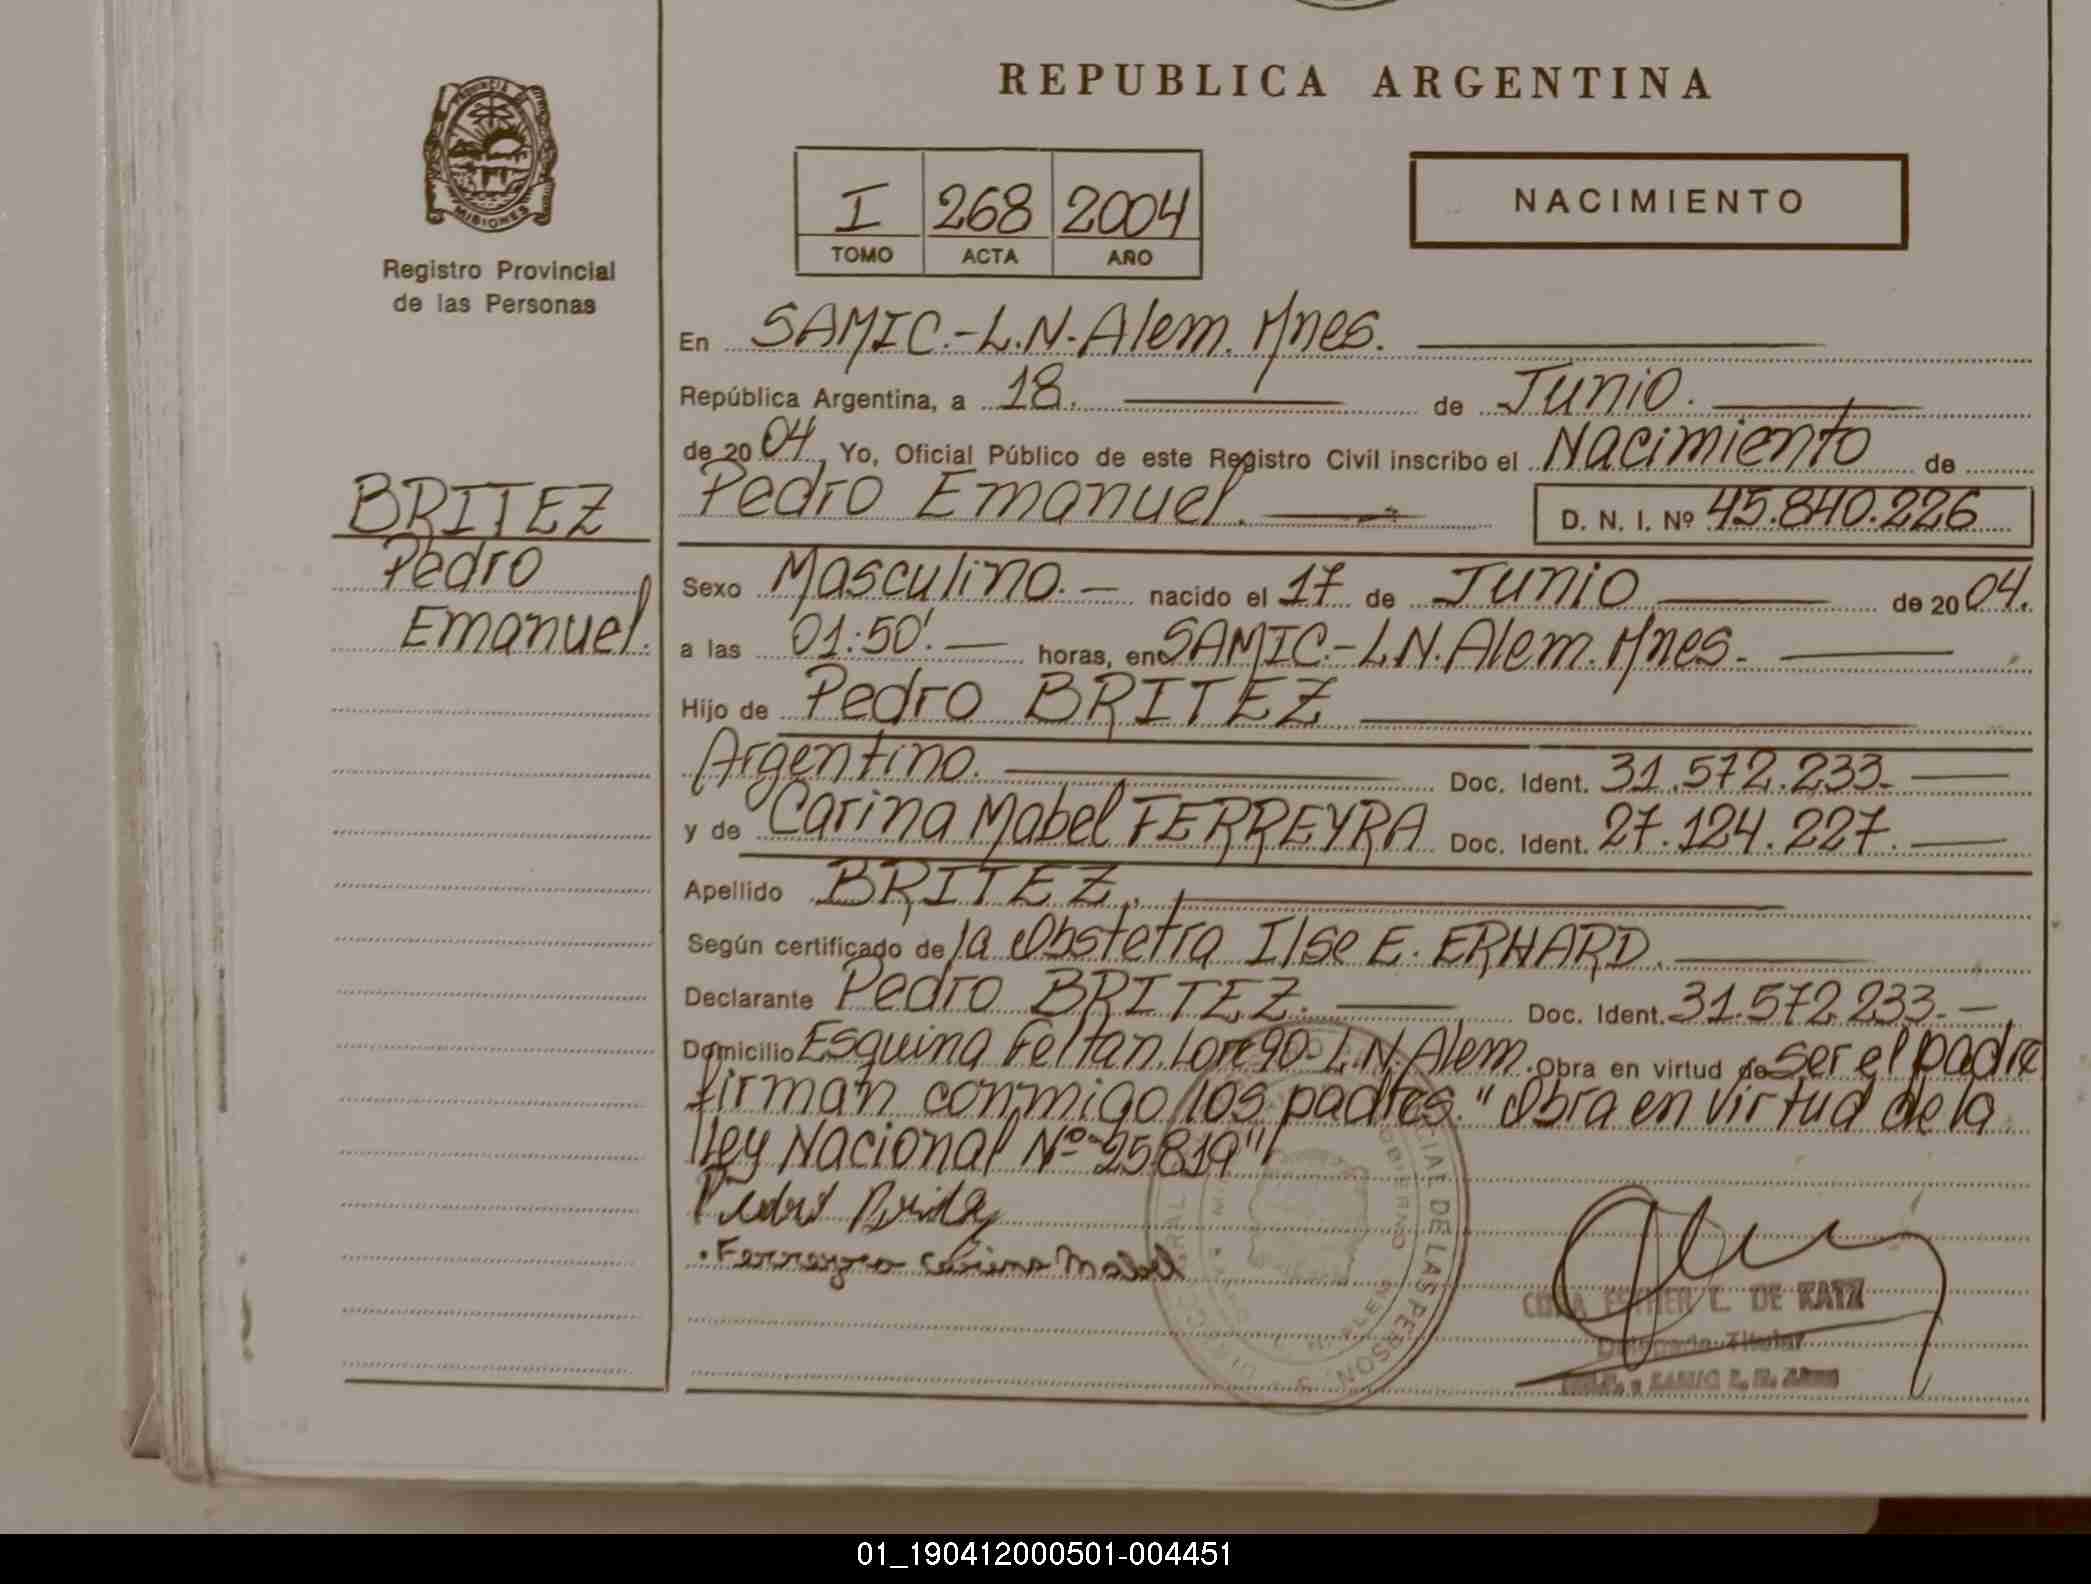 REPUBLICA ARGENTINA
PROVINCIA DE
MISIONES
Registro Provincial
de las Personas
I 268 2004
TOMO ACTA AÑO
NACIMIENTO
En SAMIC.-L.N.Alem. Mnes.
República Argentina, a 18. de Junio.
de 2004, Yo, Oficial Público de este Registro Civil inscribo el Nacimiento de
Pedro Emanuel. D. N. I. Nº 45.840.226
BRITEZ
Pedro
Emanuel.
Sexo Masculino.- nacido el 17 de Junio de 2004.
a las 01:50'.- horas, en SAMIC.-L.N.Alem. Mnes.-
Hijo de Pedro BRITEZ
Argentino. Doc. Ident. 31.572.233.-
y de Carina Mabel FERREYRA Doc. Ident. 27.124.227.-
Apellido BRITEZ.
Según certificado de la Obstetra Ilse E. ERHARD.
Declarante Pedro BRITEZ. Doc. Ident. 31.572.233.-
Domicilio Esquina Feltan. L.N.Alem. Obra en virtud de ser el padre
firman conmigo los padres. "Obra en virtud de la
Ley Nacional Nº 25819"
Ferreyra Carina Mabel
ESTHER C. DE KATZ
Delegada Titular